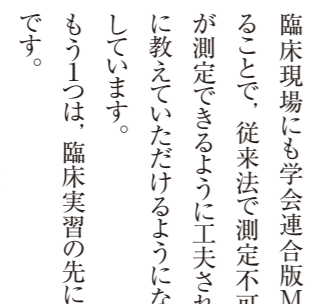 臨床現場にも学会連合版M
ることで，従来法で測定不可
が測定できるように工夫され
に教えていただけるようにな
しています。
もう1つは，臨床実習の先に
です。